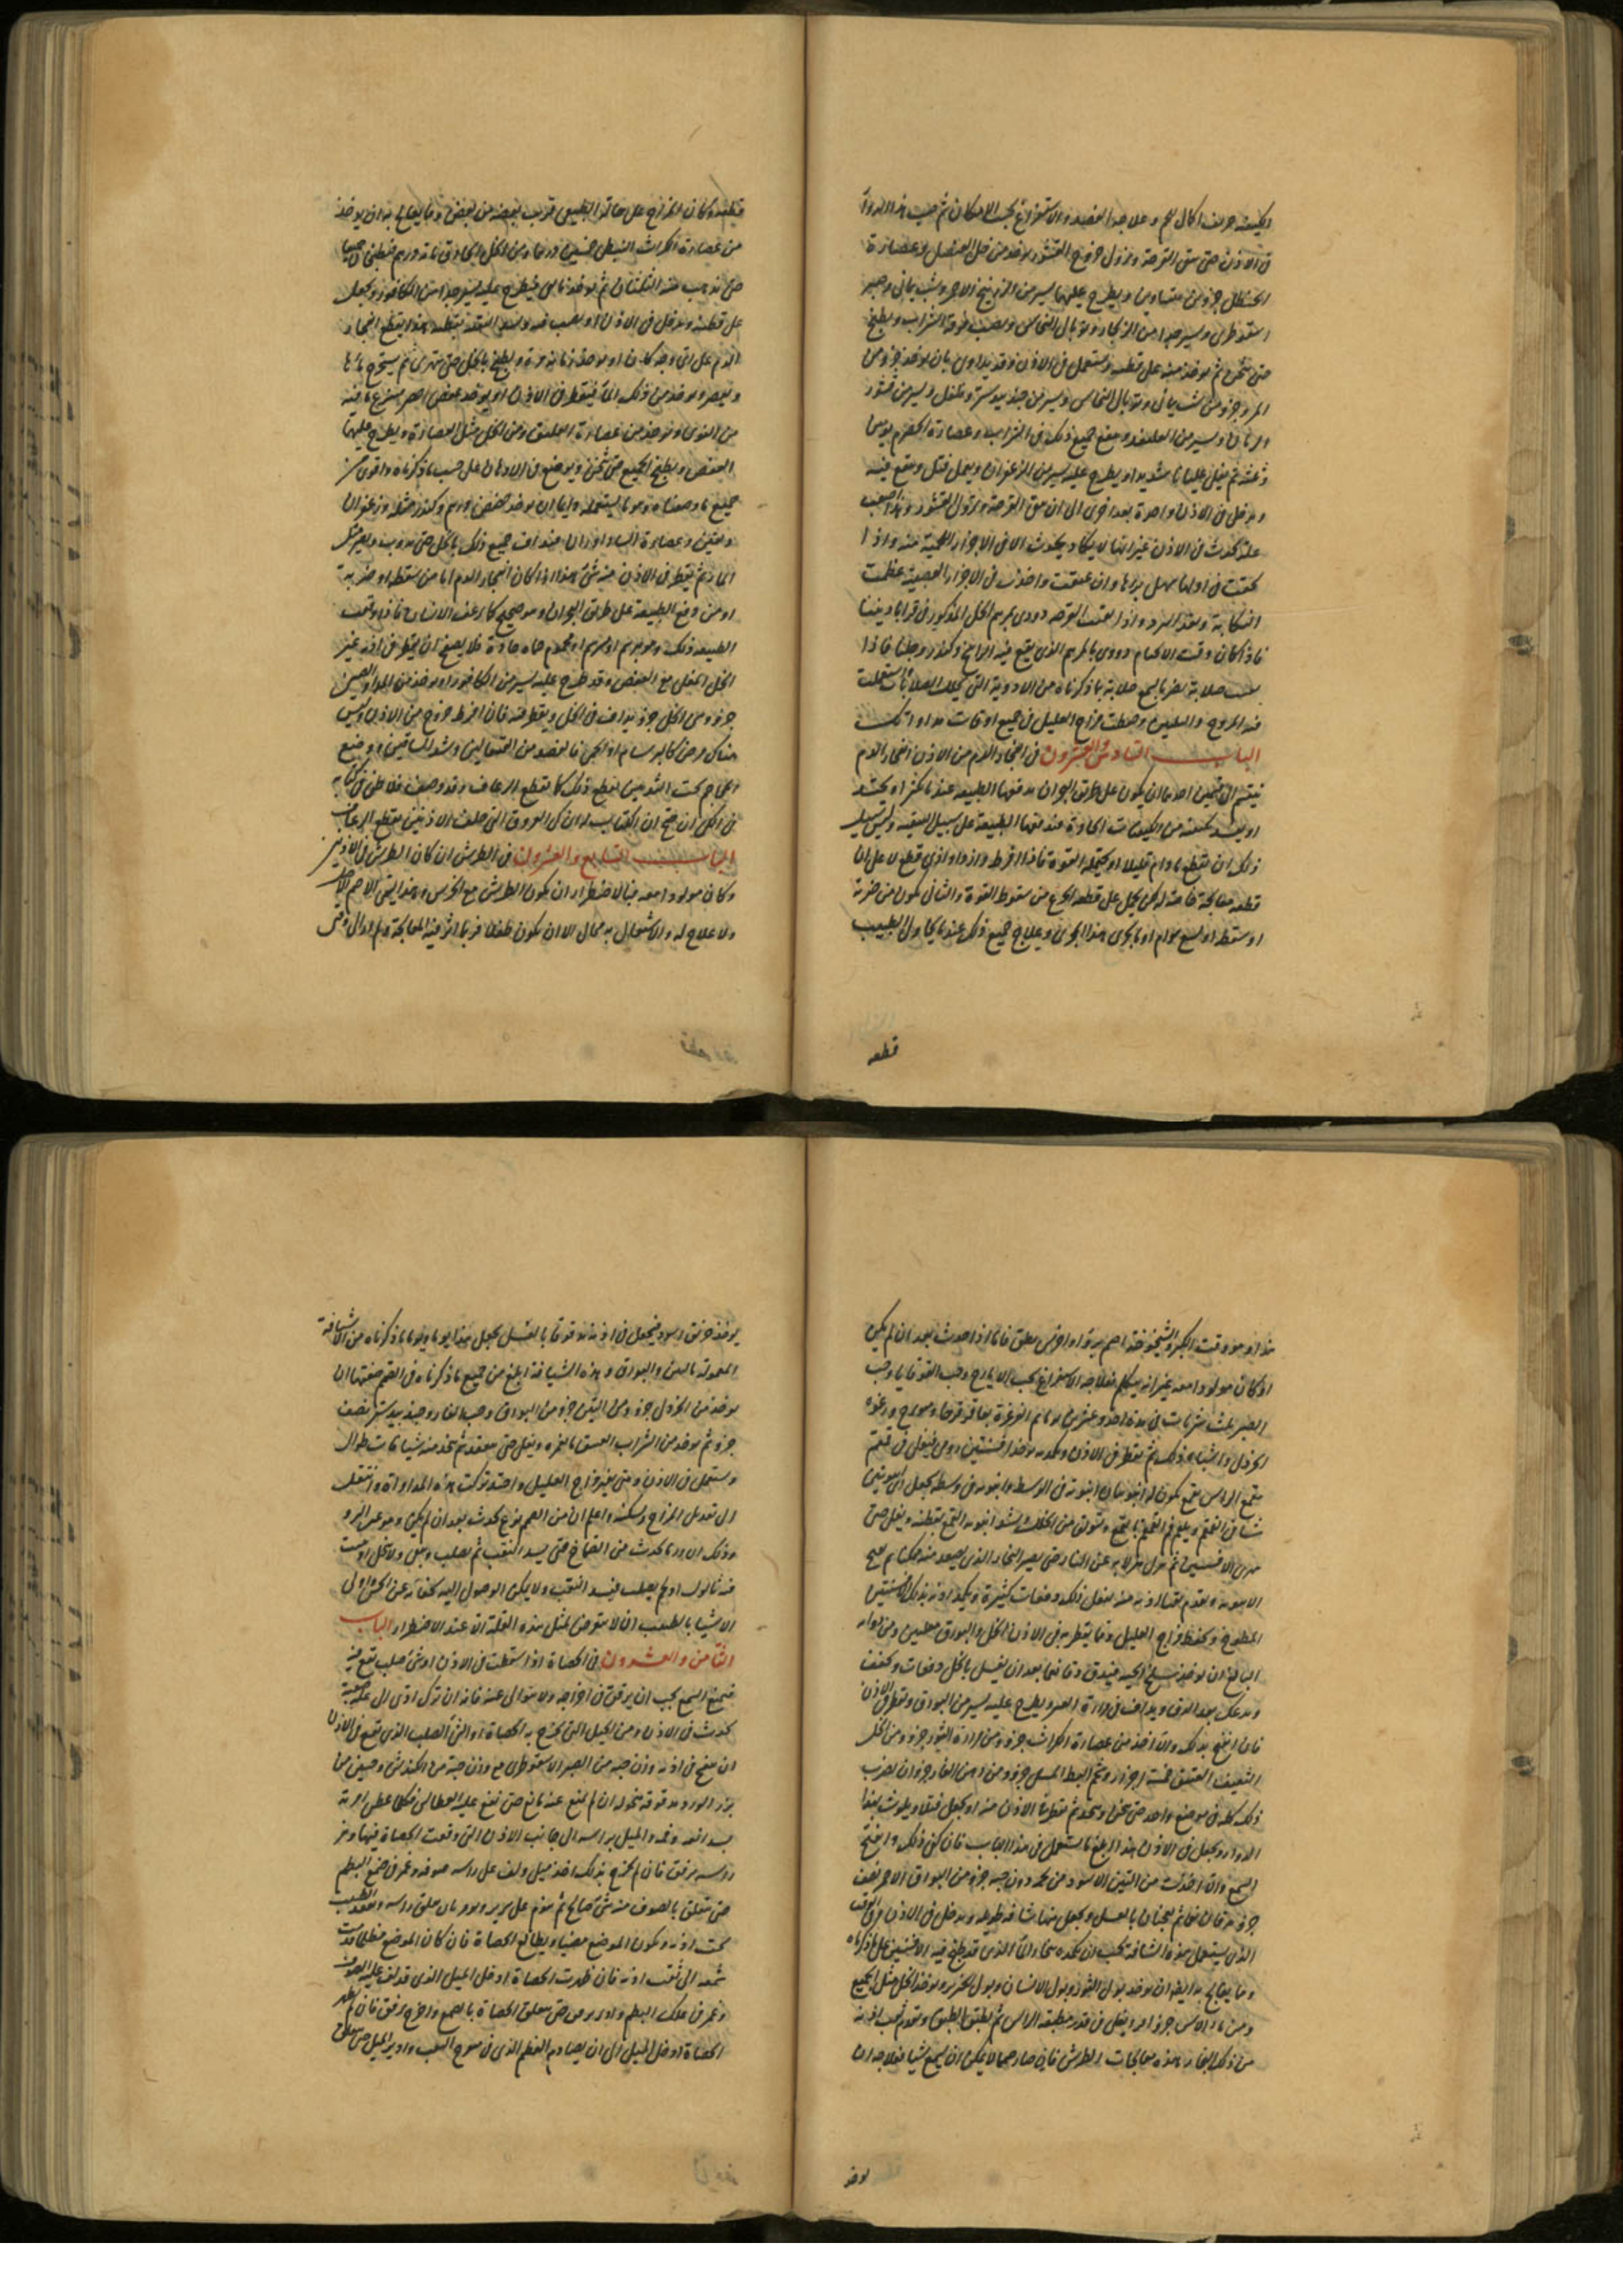 الكيفية حريف اكال للحم وعلاجه الفصد والاستفراغ بحسب الامكان ثم حب هذا الدواء
في الاذن حتى تنقى القرحة ويزول خروج القشور يوخذ من خل العنصل وعصارة
الحنظل جزوين متساوين ويطرح عليهما يسير من الزرنيخ الاحمر وشب يماني وصبر
اسقوطرى ويسير جدا من الزنجار وتوبال النحاس ويصب فوقه الشراب ويطبخ
حتى يثخن ثم يوخذ منه على قطنة ويستعمل في الاذن وقد يداوى بان يوخذ جزو من
المر وجزو من شب يمانى وتوبال النحاس ويسير من جندبيدستر وفلفل ويسير من قشور
الرمان ويسير من وينقع جميع ذلك في الشراب وعصارة الحصرم يومين
وثلثة ثم يغلى غليانا شديدا ويطرح عليه يسير من الزعفران ويعمل فتل وينقع فيه
ويدخل في الاذن واحدة بعد اخرى الى ان تنقى القرحة ويزول القشور وهذا اصعب
علة تحدث في الاذن غير انها لا يكاد يحدث الا في الاجزاء اللحمية منه واذا
لحقت في اولها سهل برءها وان عتقت واخذت في الاجزاء العصبية عظمت
النكاية وبعد البرء واذا نقيت القرحة دووى بمرهم الخل المذكور في قراباديننا
فاذا كان وقت الالحام دووى بالمرهم الذي يقع فيه المرداسنج وكندر وجلنار فاذا
صلبت صلابة تضر بالسمع صلابة بما ذكرناه من الادوية التي تحلل الصلابات استعملت
فيه المروخ والتليين وحفظت مزاج العليل في جميع اوقات مداواتك
الباب السادس والعشرون في انفجار الدم من الاذن انفجار الدم
ينقسم الى قسمين احدهما ان يكون على طريق البحران تدفعها الطبيعة عند ما يكثر او يحتد
او يفسد لكيفية من الكيفيات الحادة عند دفعها الطبيعة على سبيل التنقية وليس سبيل
ذلك ان يقطع ما دام قليلا او يحتمله القوة فاذا افرط وازداد اوذى قطع لا على ان
قطعه معالجة خاصة له لكن يحمل على قطعه الجزع من سقوط القوة والثاني يكون من ضربة
او سقطة او لسع هوام او ما يجرى هذا المجرى وعلاج جميع ذلك عند ما يحاول الطبيب
قطعه
قطعه وكان المزاج على حالته الطبيعي قريب بعضه من بعض ومما يعالج به ان يوخذ
من عصارة الكراث النبطى خمسين درهما ومن الخل الحاذق مائة درهم فيطبخ جميعا
حتى يذهب منه الثلثان ثم يوخذ ما بقى فيطرح عليه يسير جدا من الكافور ويجعل
على قطنة ويدخل في الاذن او يصب فيه ويسد الثقبة بقطنة هذا يقطع انفجار
الدم على اى وجه كان او يوخذ رمانة مزة ويطبخ بالخل حتى يتهرى ثم يستخرج ماءها
ويعصر ويوخذ من ذلك الماء فيقطر في الاذن او يوخذ عفص اخضر ينزع ما فيه
من النوى ويوخذ من عصارة العليق ومن الخل مثل العصارة ويطرح عليهما
العفص ويطبخ الجميع حتى يثخن ويوضع في الاذن على حسب ما ذكرناه واقوى من
جميع ما وصفناه وهو ما يستعمله وايانا ان يوخذ حضض درهم وكندر مثله وزعفران
دانقين وعصارة اجزاء يداف جميع ذلك بالخل حتى يذوب ويصير مثل
الماء ثم يقطر في الاذن منه شئ هذا اذا كان انفجار الدم اما من سقطة او ضربة
او من دفع الطبيعة على طريق البحران وهو صحيح كما رعف الانسان فاذا دفعت
الطبيعة ذلك وهو مبرسم او مسرسم او محموم حماه حادة فلا يصلح ان يقطر في اذنه غير
الخل المغلى مع العفص وقد طرح عليه يسير من الكافور او يوخذ من المداد الصينى
جزو ومن الخل جزو يداف في الخل ويقطر منه فان افرط خروج من الاذن وليس
هناك مرض كالبرسام او الحمى فالفصد من القيفالين وشد الساقين ووضع
المحاجم تحت الثديين لقطع ذلك كما يقطع الرعاف وقد وصف فلاطن في كتابه
في الكى ان صح ان الكتاب له ان كى العروق التي خلف الاذنين يقطع الرعاف
الباب السابع والعشرون في الطرش ان كان الطرش في الاذنين
وكان مولودا معه فبالاضطرار ان يكون الطرش مع الخرس وهذا يسمى الاصم الاخرس
ولا علاج له والاشتغال به محال الا ان يكون طفلا فربما اثر فيه المعالجة ولم الى وقتى
هذا وهو وقت الكبر والشيخوخة اصم برأ او اخرس يطلق فاما اذا حدث بعد ان لم يكن
او كان مولودا معه غير انه يتكلم فعلاجه الاستفراغ بحب الايارج وحب القوقايا وحب
الصبر ثلث شربات في مدة احد وعشرين يوما ثم الغرغرة بعاقرقرحا وميويزج ورغوة
الخردل واشباه ذلك ثم يقطر في الاذن وتكمده يوخذ افسنتين رومى فيغلى في قمقم
بقمع الراس بقمع يكون له انبوبتان انبوبة في الوسط وانبوبة في وسطه يجعل
ويغلى حتى
يتهرى الافسنتين ثم ينزل عن النار حتى يصير البخار الذي يصعد منه ممكنا ثم يفتح
الانبوبة ويقدم ثقب اذنه منه يفعل ذلك دفعات كثيرة ويكمد اذنه بذلك الافسنتين
المطبوخ ويحفظ مزاج العليل ومما يقطر به في الاذن الخل والبورق مغليين ومن دوائه
البالغ ان يوخذ سلخ الحية فيدق دقا ناعما بعد ان يغسل بالخل دفعات ويجفف
ويدعك بعد الدق ويداف في مرارة العنز ويطرح عليه يسير من البورق ويقطر في الاذن
فان انفتح بذلك والا اخذ من عصارة الكراث جزو ومن مرارة الثور جزو ومن الخل
الثقيف العتيق خمسة اجزاء وشحم البط المسلى جزو ومن دهن الغار جزوان يضرب
ذلك كله في موضع واحد حتى يسخن ويتحد ثم يقطر في الاذن منه او يجعل فتيلة ويلوث بهذا
الدواء ويجعل في الاذن هذا ابلغ ما يستعمل في هذا الباب فان كفى ذلك وانفتح
السمع والا اخذت من التين الاسود من لحمه دون حبه جزو من البورق الاحمر نصف
جزو يدقان معا ثم يعجنان بالعسل ويجعل منها شيافة طويلة ويدخل في الاذن وفى الوقت
الذي يستعمل هذه الشيافة يجب ان يكمده ببخار الماء الذي قد طبخ فيه الافسنتين على ما ذكرناه
ومما يعالج به ايضا ان يوخذ بول الثور وبول الانسان وبول الخنزير ويوخذ الخل مثل الجميع
ومن ماء الاس جزوا ويغلى في قدر مطبقة الراس ثم يطبق الطبق ويقدم ثقب اذنه
من ذلك البخار هذه معالجات الطرش فاذا صار صمما لا يمكن ان يسمع شيئا فعلاجه ان
يوخذ
يوخذ خربق اسود فيجعل في اذنه مدقوقا بالعسل يجعل هذا يوما ويوما ما ذكرناه من الاشيافة
المعمولة بالتين والبورق وهذه الشيافة ابلغ من جميع ما ذكرناه في الصمم صفتها ان
يوخذ من الخردل جزو ومن التين جزو من البورق وحب الغار وجندبيدستر نصف
جزو ثم يوخذ من الشراب العتيق ما يغمره ويغلى حتى ينعقد ثم يتخذ منه شيافات طوال
ويستعمل في الاذن ومتى تغير مزاج العليل واحتد تركت هذه المداواة وانتقلت
الى تعديل المزاج وتسكينه واعلم ان من الصمم نوع يحدث بعد ان لم يكن وهو عسر البرو
وذلك ان ورما يحدث من الصماخ حتى يسد الثقب ثم يصلب ويبقى ولا يتحلل او ينبت
فيه ثالول او لحم يصلب فيسد الثقب ولا يمكن الوصول اليه لخفائه عن الحس واولى
الاشياء بالطبيب ان لا يتعرض لمثل هذه العلة الا عند الاضطرار الباب
الثامن والعشرون في الحصاة اذا سقطت في الاذن او شئ صلب يقع فيه
فيمنع السمع يجب ان يرفق في اخراجه ولا يتوانى عنه فانه ان ترك ادى الى علة صعبة
يحدث في الاذن ومن الحيل التي يخرج به الحصاة او الشئ الصلب الذي يقع في الاذن
ان ينفخ في اذنه وزن حبة من الصبر الاسقوطرى مع وزن حبة من الكندش وحبتين من
بزر الورد مدقوقة منخولة ان لم يمنع عنه مانع حتى يقع عليه العطاس فكلما عطس امرته
بسد انفه وفمه والميل براسه الى جانب الاذن التي وقعت الحصاة فيها وغمز
راسه برفق فان لم يخرج بذلك اخذ ميل ولف على راسه صوفة وغمر في صمغ البطم
حتى يتعلق بالصوف منه شئ صالح ثم ينوم على سرير ويومر بان يعلق راسه ويقعد الطبيب
تحت اذنه ويكون الموضع مضيئا ويطالع الحصاة فان كان الموضع مظلما قدمت
شمعة الى ثقب اذنه فان ظهرت الحصاة ادخل الميل الذي قد لف عليه الصوف
وغمر في علك البطم وادير برفق حتى يتعلق الحصاة بالصمغ واخرج برفق فان لم يظهر
الحصاة ادخل الميل الى ان يصادم العظم الذي في الثقب وادير الميل حتى يتعلق